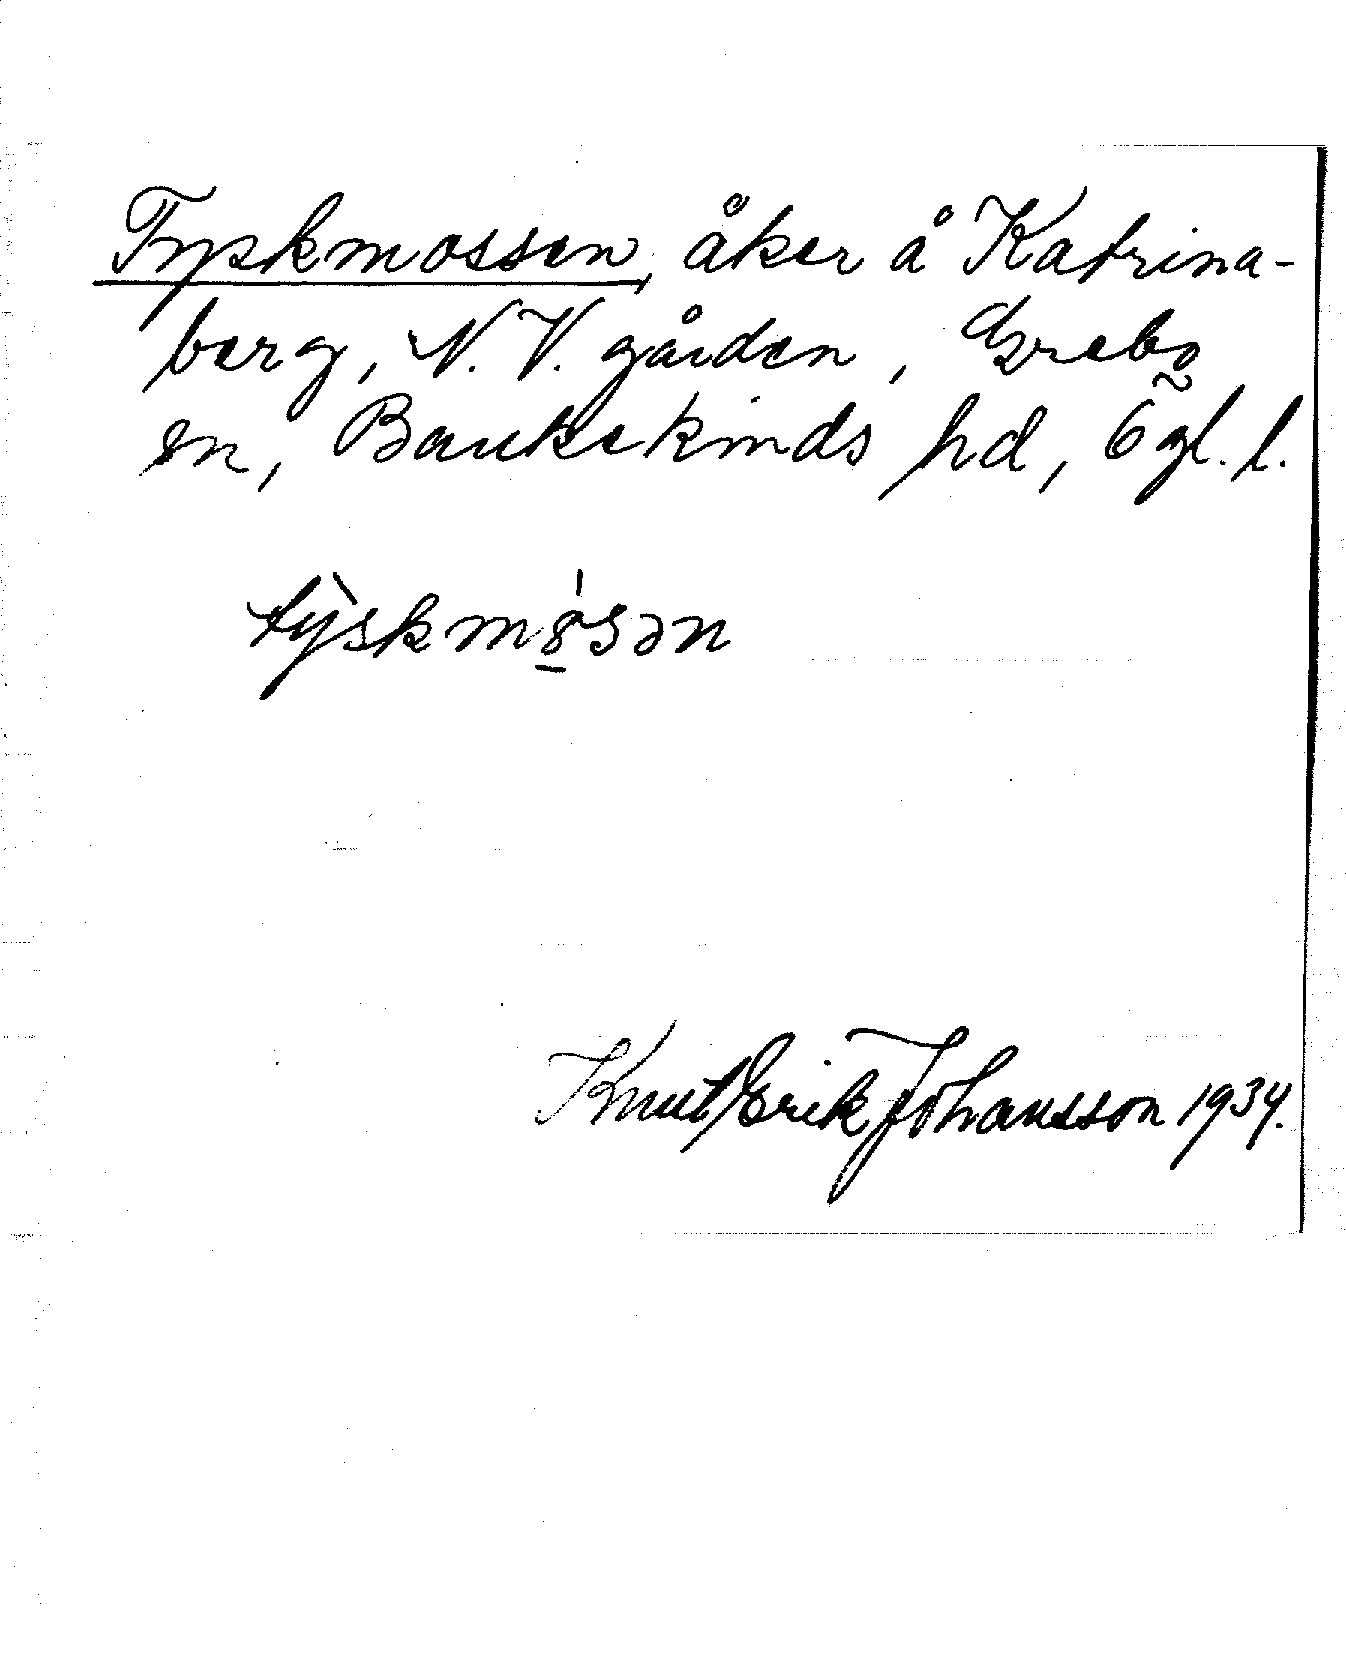 Tyskmossen, åker å Katrina-
berg, N. V. gården, Grebo
sn, Bankekinds hd, Ögl. l.
tỳskmósən
Knut Erik Johansson 1934.